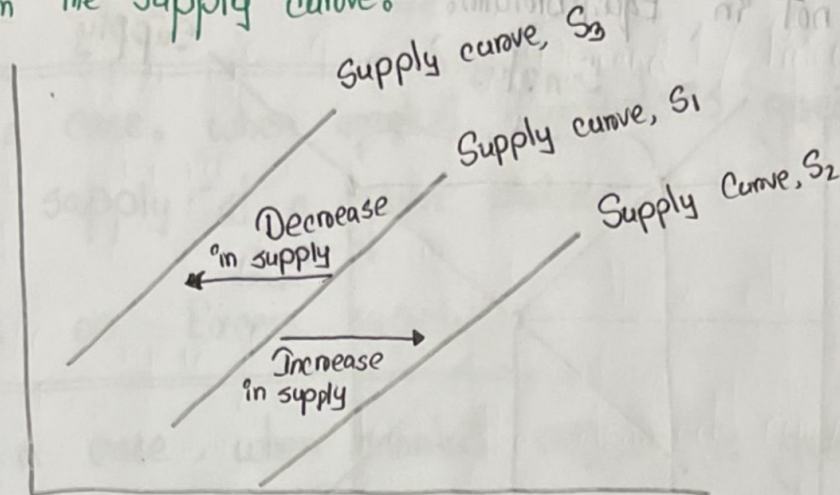 n the supply curve.
Supply curve, S3
Supply curve, S1
Supply Curve, S2
Decrease
in supply
Increase
in supply